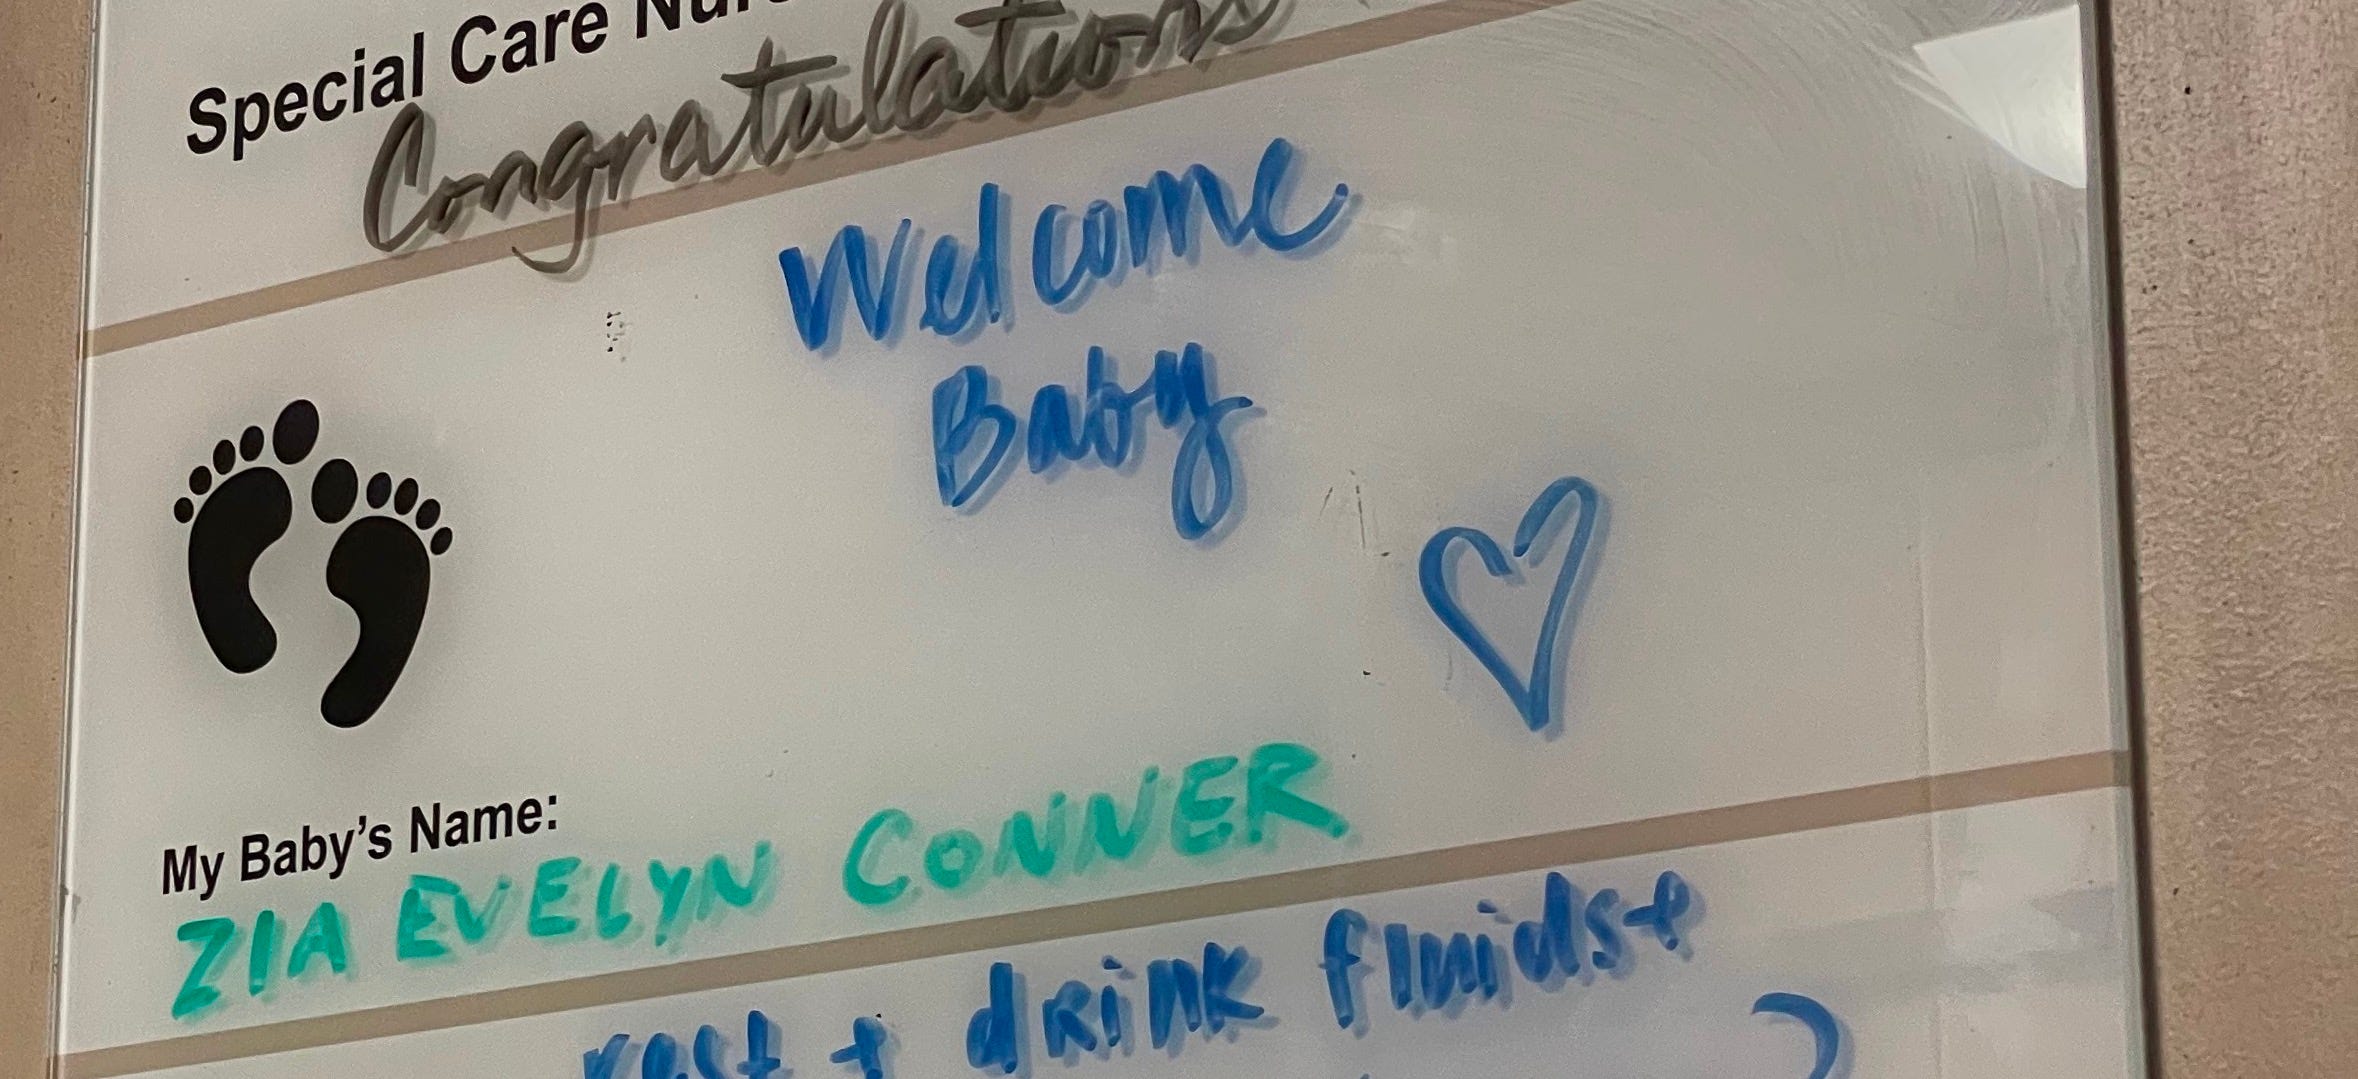 Special Care
Congratulations
Welcome
Baby
My Baby's Name:
ZIA EVELYN CONNER
rest + drink fluids +